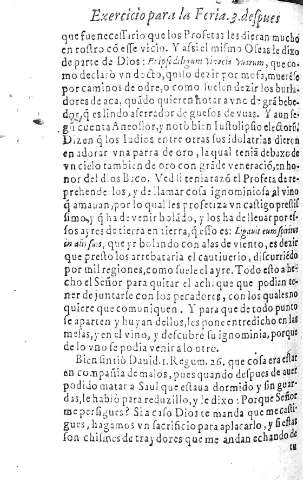 Exercicio para la Feria.3.despues
que fue necessario que los Profetas les dieran mucho
en rostro cõ esse vicio. Y assi el mismo Oseas le dixo
de parte de Dios: diligun vinacia vuarum, que co-
mo declarò vn docto, quiso dezir por mesa, muerese
por caminos de odre, o como suelen dezir los burla-
dores de aca, quãdo quieren notar a vno de grã bebe-
dor, q̃ es lindo aferrador de guessos de vuas. Y aun se-
gũ cuenta y notò bien Iusto Lipsio
Dizen q̃ los Iudios entre otras sus idolatrias dieron
en adorar vna parra de oro, la qual teniã debaxo de
vn cielo tambien de oro con grãde veneraciõ, en ho-
nor del dios Baco. Ved si tenia razõ el Profeta de re-
prehendelos, y de llamar cosa ignominiosa al vino
q̃ amauan, por lo qual les profetiza vn castigo prestis
simo, y q̃ ha de venir bolãdo, y los ha de lleuar por es-
sos ayres de tierra en tierra, q̃ esso es: Ligauit eum spiritus
in alis suis, que yr bolando con alas de viento, es dezir
que presto los arrebataria el cautiuerio, discurriẽdo
por mil regiones, como suele el ayre. Todo esto a he-
cho el Señor para quitar el ach. que que podian te-
ner de juntarse con los pecadores, con los quales no
quiere que comuniquen. Y para que de todo punto
se aparten y huyan dellos, les pone entredicho en las
mesas, y en el vino, y descubre su ignominia, porque
de lo vno se podia venir a lo otro.
Bien sintiò Dauid. 1. Regum. 26. que cosa era estar
en compañia de malos, pues quando despues de auer
podido matar a Saul que estaua dormido y sin guar-
das, le habló para reduzillo, y le dixo: Porque Señor
me persigues? Si a caso Dios te manda que me casti-
gues, hagamos vn sacrificio para aplacarlo, y si estas
son chismes de traydores que me andan echando de
tu